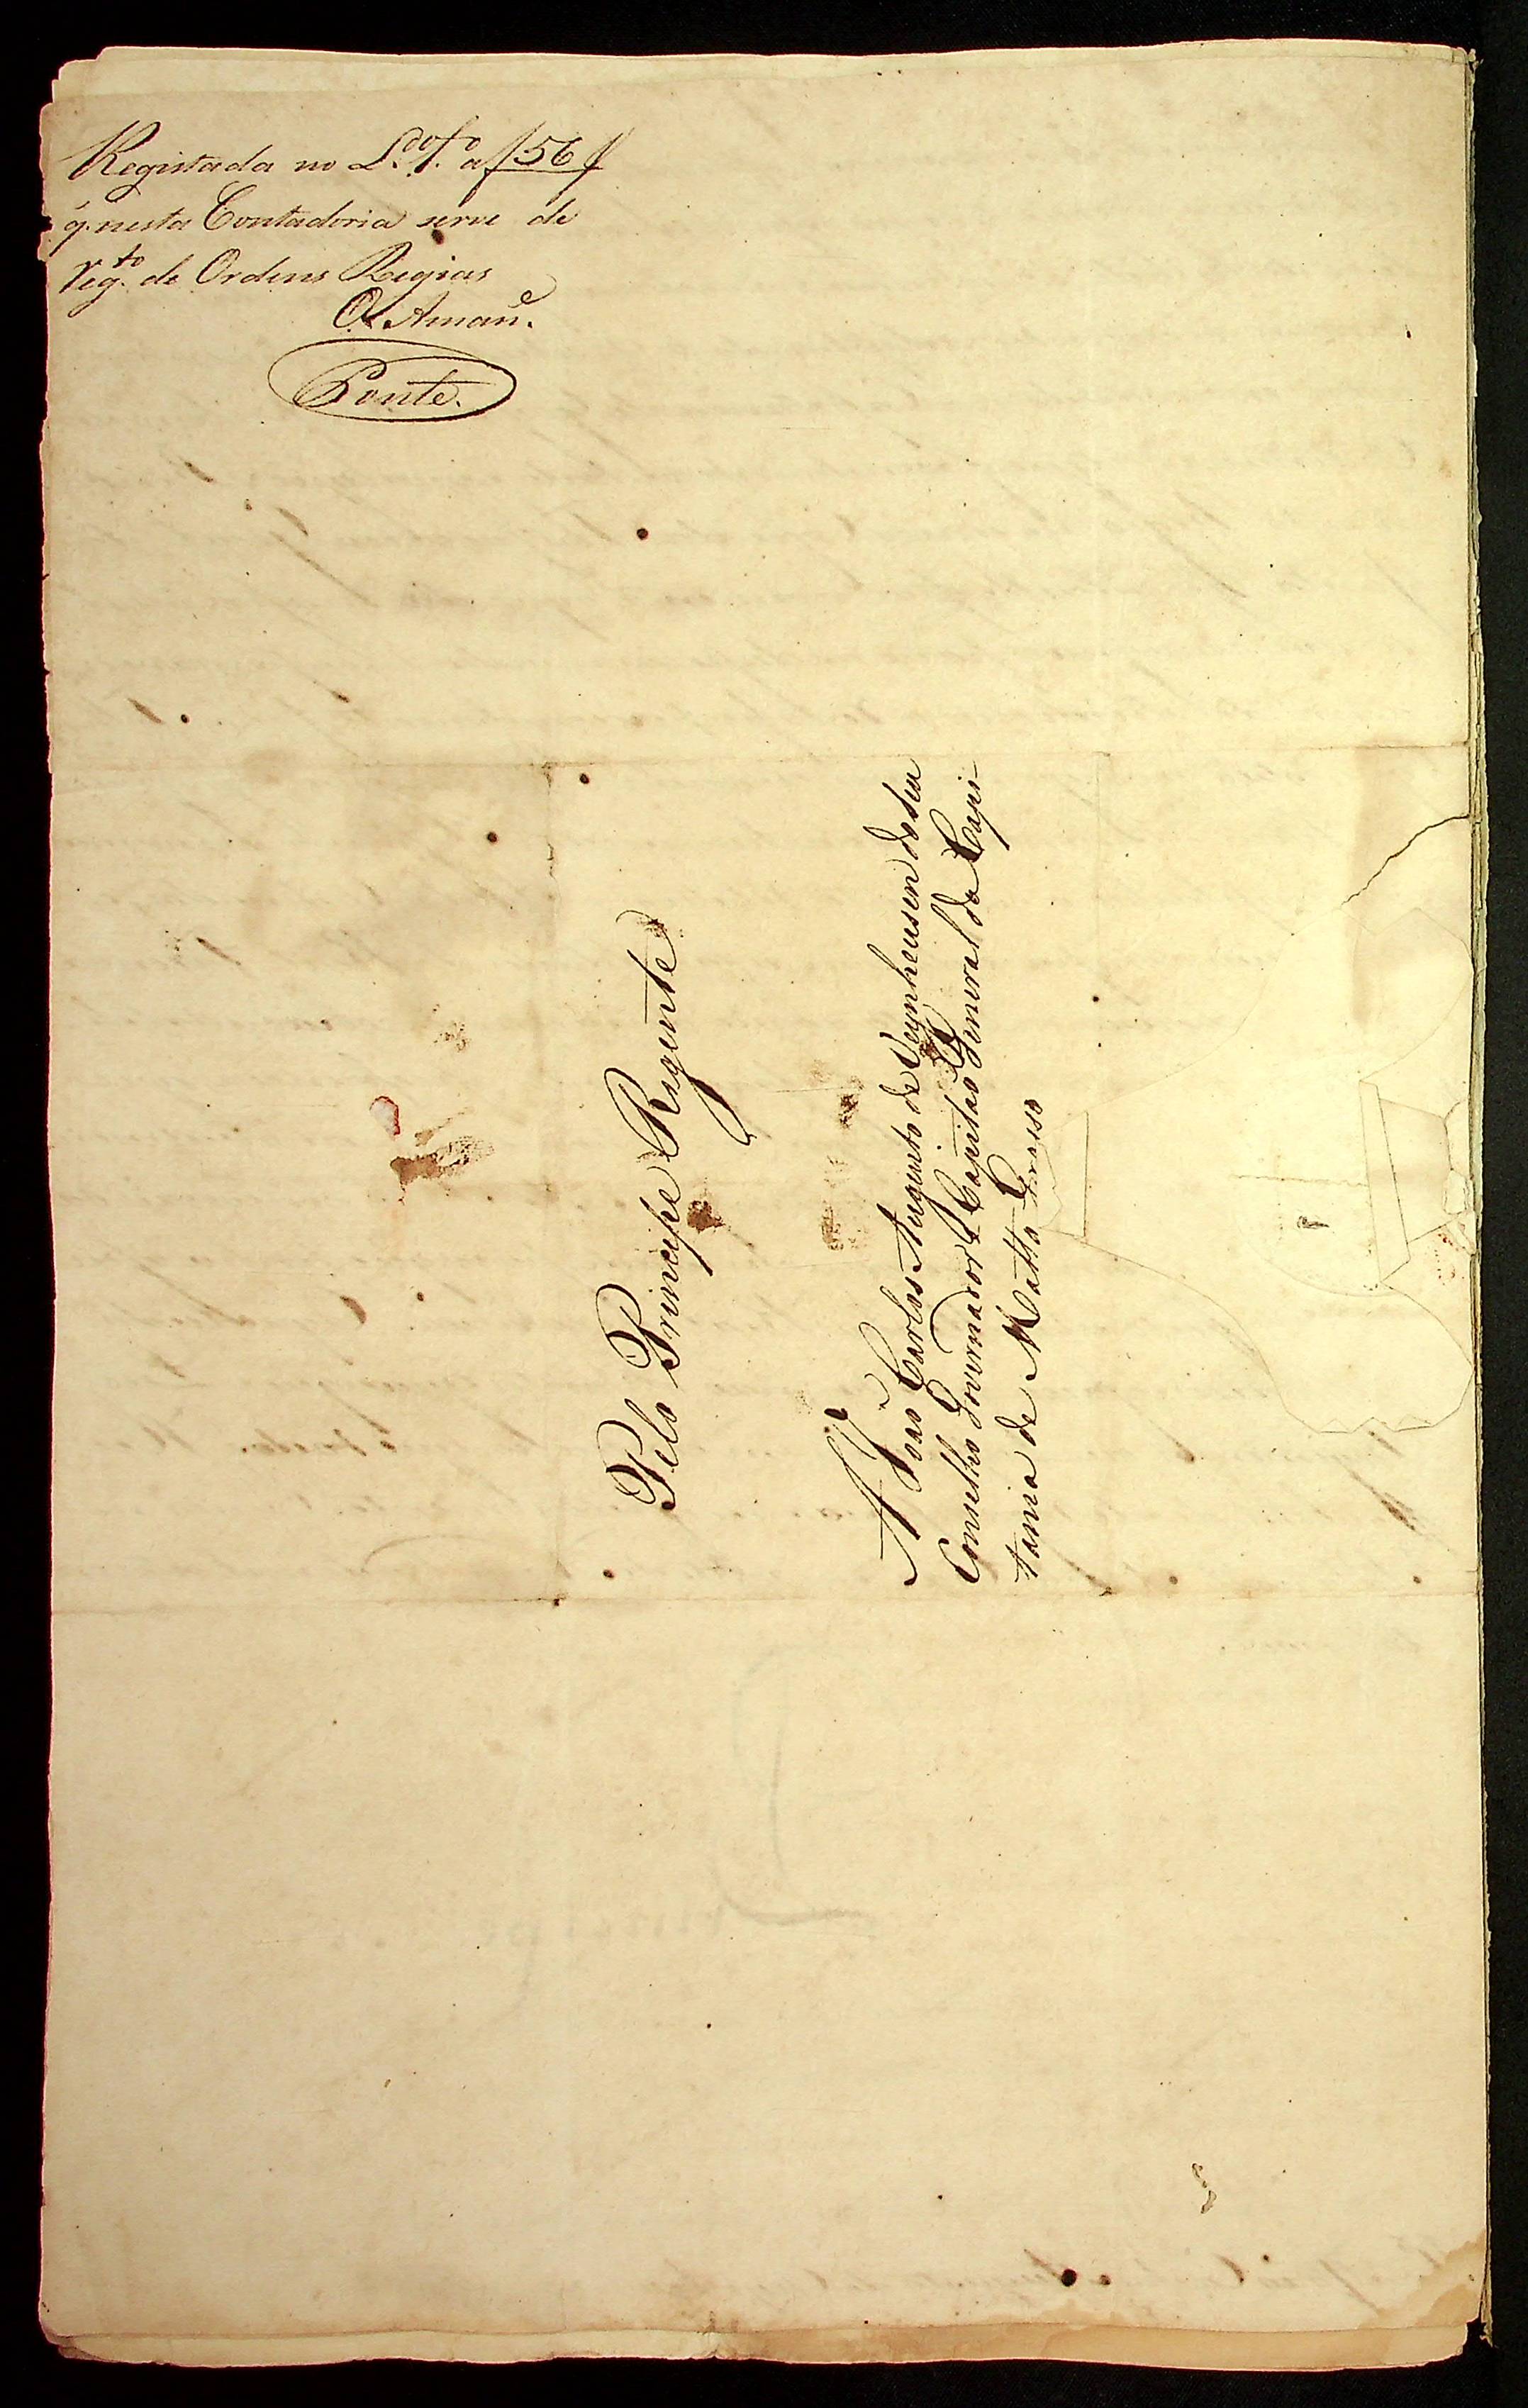 Registada no L.do 1.o a f 56 f
q. nesta Contadoria serve de
reg.to de Ordens Regias
O Aman.e
Ponte.
Pelo Principe Regente
A João Carlos Augusto de Oeynheusen do seu
Conselho Governador e Capitão General da Capi-
tania de Matto Grosso